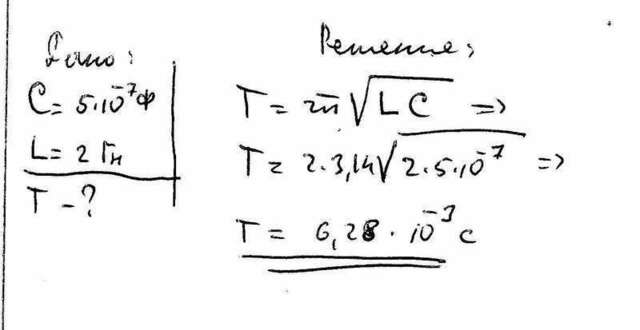 Дано:
C = 5·10⁻⁷ Ф
L = 2 Гн
T - ?
Решение:
T = 2π√LC =>
T = 2·3,14√2·5·10⁻⁷ =>
T = 6,28·10⁻³ с